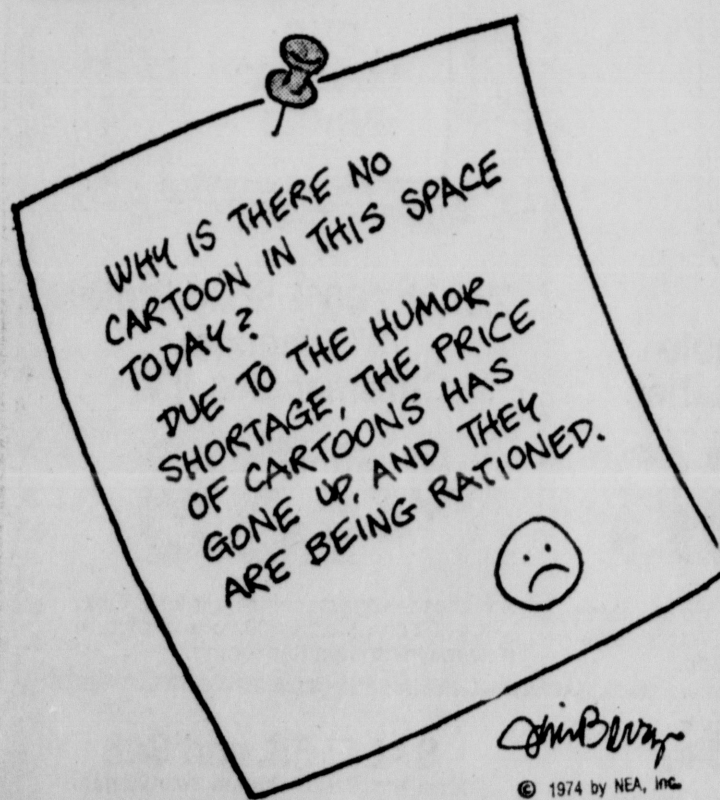 WHY IS THERE NO
CARTOON IN THIS SPACE
TODAY?
DUE TO THE HUMOR
SHORTAGE, THE PRICE
OF CARTOONS HAS
GONE UP, AND THEY
ARE BEING RATIONED.
Jim Berry
© 1974 by NEA, Inc.